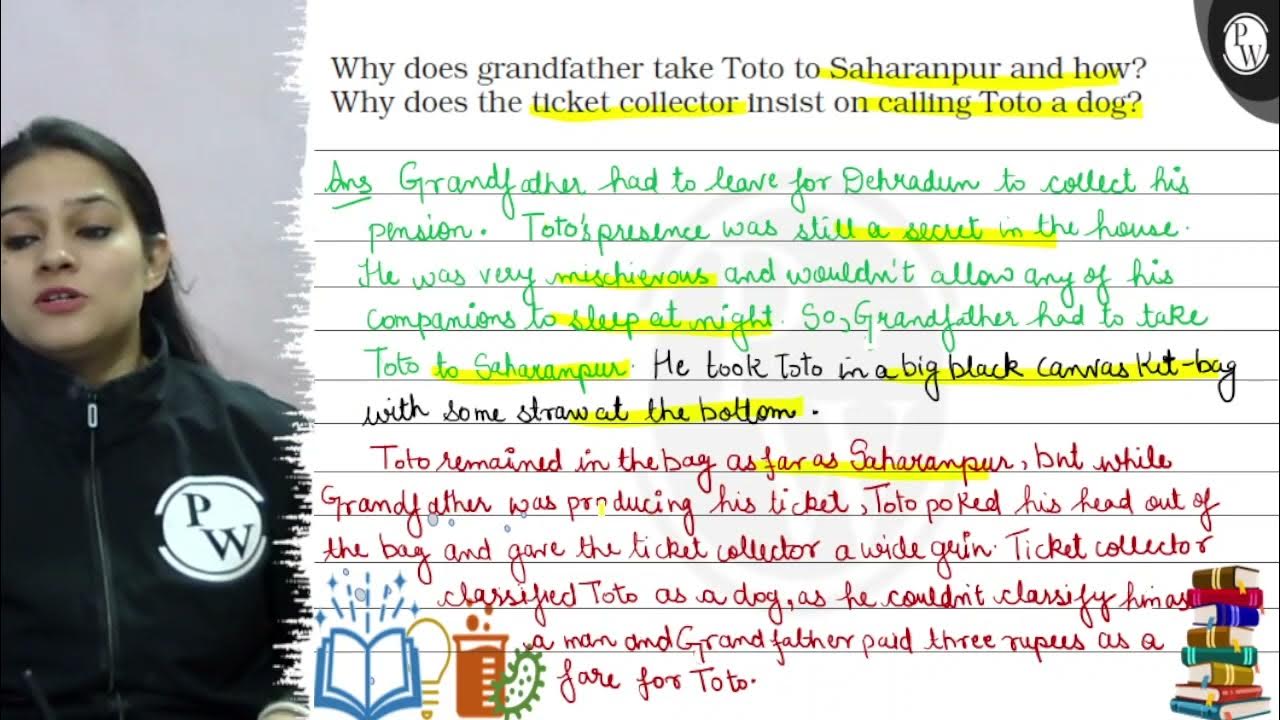 P
W
Why does grandfather take Toto to Saharanpur and how?
Why does the ticket collector insist on calling Toto a dog?
Ans Grandfather had to leave for Dehradun to collect his
pension. Toto's presence was still a secret in the house.
He was very mischievous and wouldn't allow any of his
companions to sleep at night. So, Grandfather had to take
Toto to Saharanpur. He took Toto in a big black canvas Kit-bag
with some straw at the bottom.
Toto remained in the bag as far as Saharanpur, but while
Grandfather was producing his ticket, Toto poked his head out of
the bag and gave the ticket collector a wide grin. Ticket collector
classified Toto as a dog, as he couldn't classify him as
a man and Grandfather paid three rupees as a
fare for Toto.
P
W